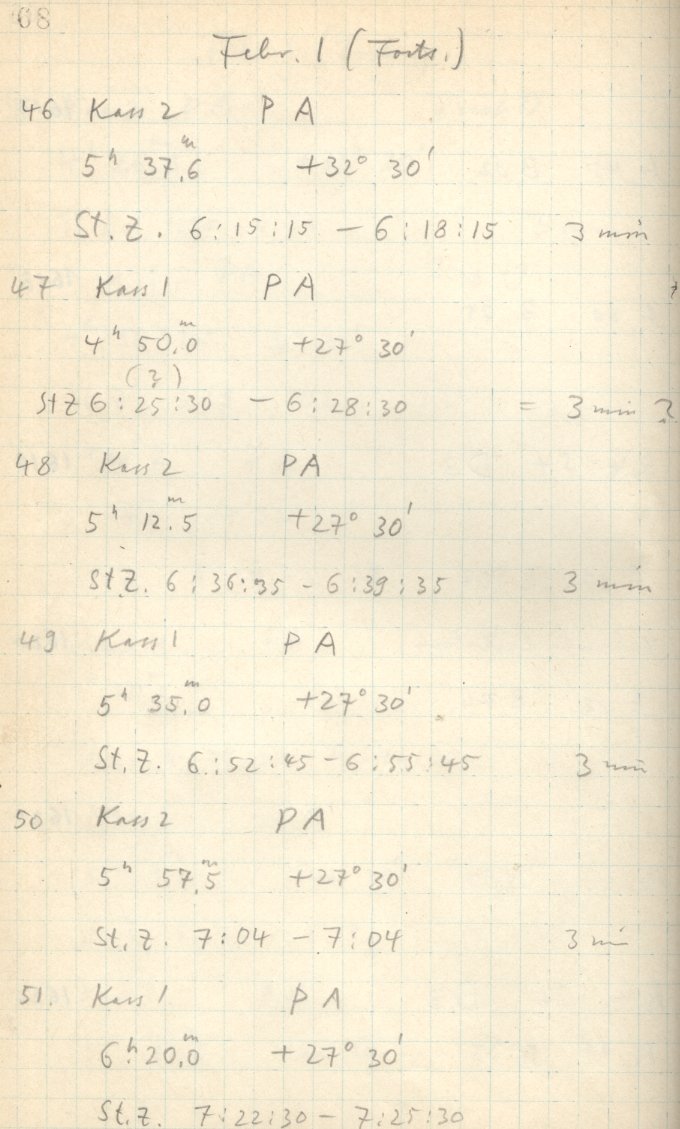 08
Febr. 1 (Forts.)
46 Kass 2 P A
5h 37,6m +32° 30'
St. Z. 6:15:15 – 6:18:15 3 min
47 Kass 1 P A
4h 50,0m +27° 30'
(?)
St Z 6:25:30 – 6:28:30 = 3 min ?
48 Kass 2 P A
5h 12.5m +27° 30'
St Z. 6:36:35 – 6:39:35 3 min
49 Kass 1 P A
5h 35,0m +27° 30'
St. Z. 6:52:45 – 6:55:45 3 min
50 Kass 2 P A
5h 57,5m +27° 30'
St. Z. 7:04 – 7:04 3 min
51. Kass 1 P A
6h 20,0m +27° 30'
St. Z. 7:22:30 – 7:25:30